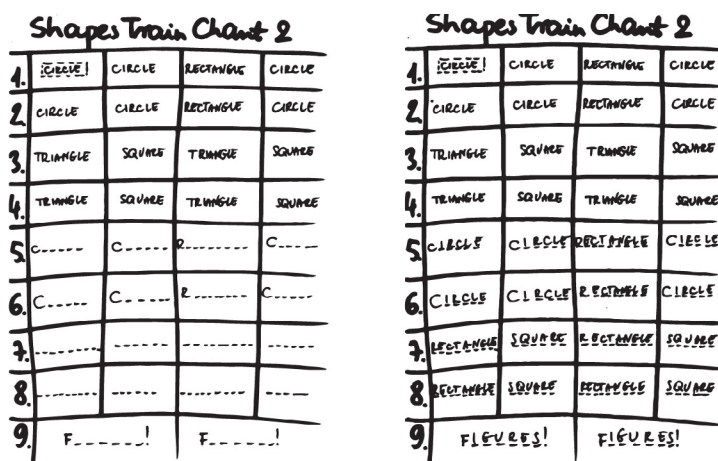 Shapes Train Chant 2
1. CIRCLE! CIRCLE RECTANGLE CIRCLE
2. CIRCLE CIRCLE RECTANGLE CIRCLE
3. TRIANGLE SQUARE TRIANGLE SQUARE
4. TRIANGLE SQUARE TRIANGLE SQUARE
5. C------ C----- R--------- C-----
6. C----- C----- R-------- C-----
7. ---------- ------ --------- ------
8. --------- ------ --------- -----
9. F______! F______!
Shapes Train Chant 2
1. CIRCLE! CIRCLE RECTANGLE CIRCLE
2. CIRCLE CIRCLE RECTANGLE CIRCLE
3. TRIANGLE SQUARE TRIANGLE SQUARE
4. TRIANGLE SQUARE TRIANGLE SQUARE
5. CIRCLE CIRCLE RECTANGLE CIRCLE
6. CIRCLE CIRCLE RECTANGLE CIRCLE
7. RECTANGLE SQUARE RECTANGLE SQUARE
8. RECTANGLE SQUARE RECTANGLE SQUARE
9. FIGURES! FIGURES!